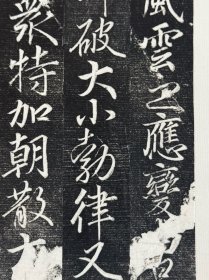 風雲之應變
破大小勃律又
眾特加朝散大